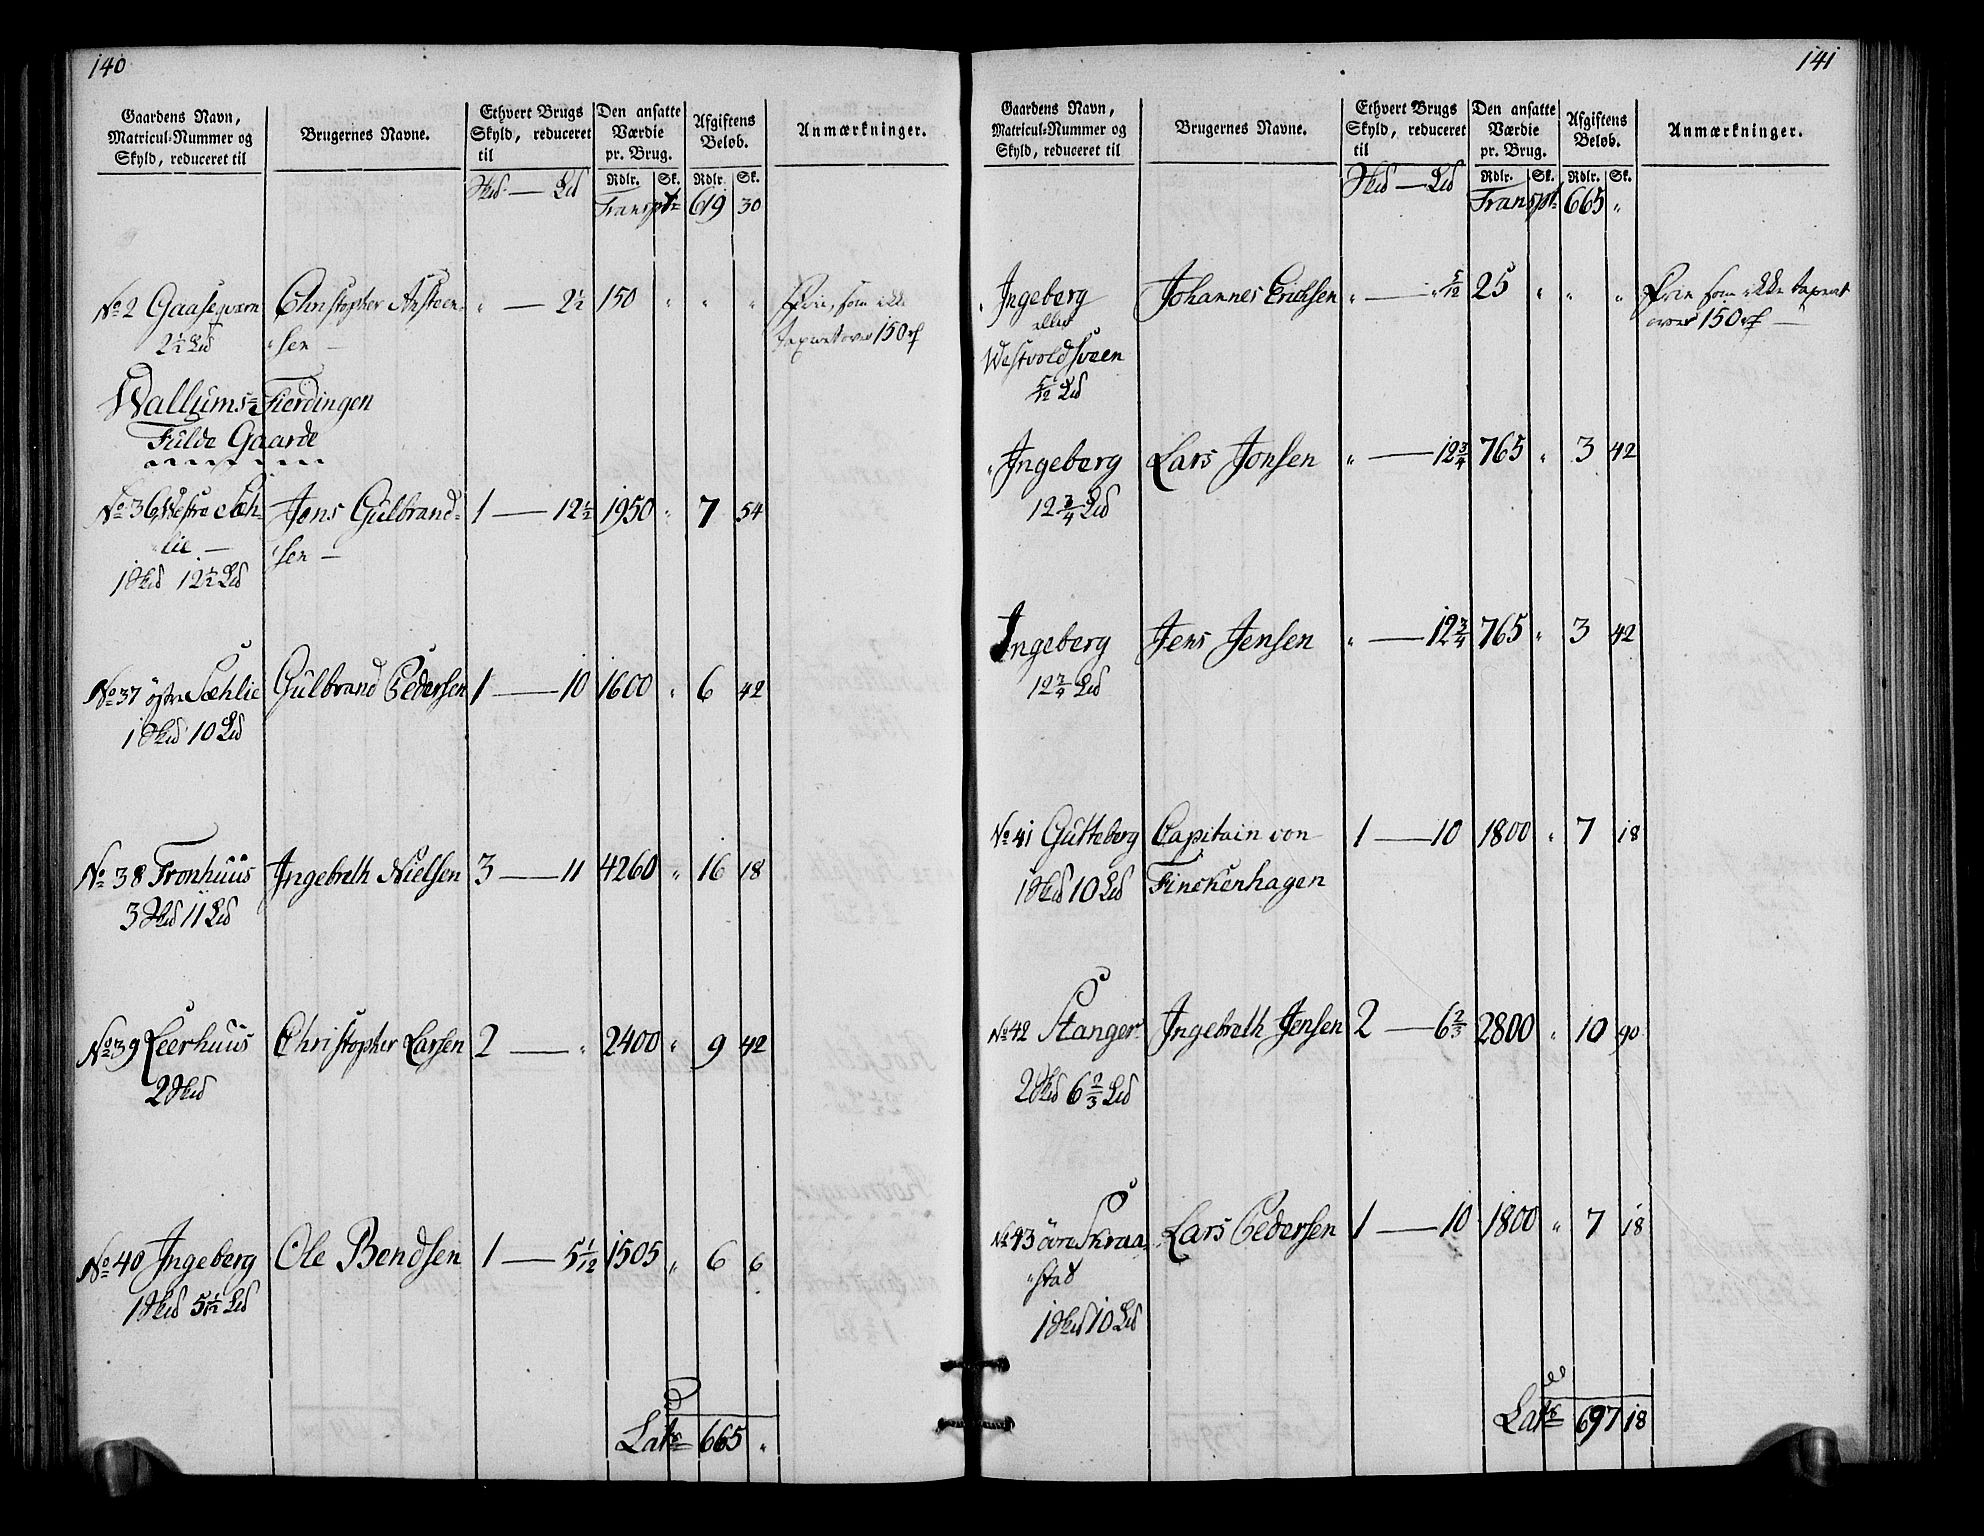 140
Gaardens Navn, Matricul-Nummer og Skyld, reduceret til | Brugernes Navne. | Ethvert Brugs Skyld, reduceret til | Den ansatte Værdie pr. Brug. | Afgiftens Beløb. | Anmærkninger.
Rdlr. Sk. Rdlr. Sk.
Skd — Ld Transpt 619 30
No 2 Gaaseqværn Christopher Ansteen- " — 2½ 150 " " " Frie, som ikke
2½ Ld sen — taxeret over 150 rd
Wallums-Fierdingen
Fulde Gaarde
No 36, Westre Sæh- Jens Gulbrand- 1 — 12½ 1950 " 7 54
lie — sen —
1 Skd 12½ Ld
No 37 östre Sæhlie Gulbrand Pedersen 1 — 10 1600 " 6 42
1 Skd 10 Ld
No 38 Tronhuus Ingebreth Nielsen 3 — 11 4260 " 16 18
3 Skd 11 Ld
No 39 Leerhuus Christopher Larsen 2 — " 2400 " 9 42
2 Skd
No 40 Ingeberg Ole Bendsen 1 — 5 1/12 1505 " 6 6
1 Skd 5 1/12 Ld
Late 665 "
141
Gaardens Navn, Matricul-Nummer og Skyld, reduceret til | Brugernes Navne. | Ethvert Brugs Skyld, reduceret til | Den ansatte Værdie pr. Brug. | Afgiftens Beløb. | Anmærkninger.
Rdlr. Sk. Rdlr. Sk.
Skd — Ld Transpt 665 "
" Ingeberg Johannes Erichsen " — " 5/12 25 " " " Frie som ikke taxeret
eller over 150 rd —
Westvoldsveen
5/12 Ld
" Ingeberg Lars Jonsen " — 12¾ 765 " 3 42
12¾ Ld
Ingeberg Jens Jensen " — 12¾ 765 " 3 42
12¾ Ld
No 41 Gutteberg Capitain von 1 — 10 1800 " 7 18
1 Skd 10 Ld Finckenhagen
No 42 Stanger Ingebreth Jensen 2 — 6⅔ 2800 " 10 90
2 Skd 6⅔ Ld
No 43 övre Skraa- Lars Pedersen 1 — 10 1800 " 7 18
stad
1 Skd 10 Ld
Late 697 18